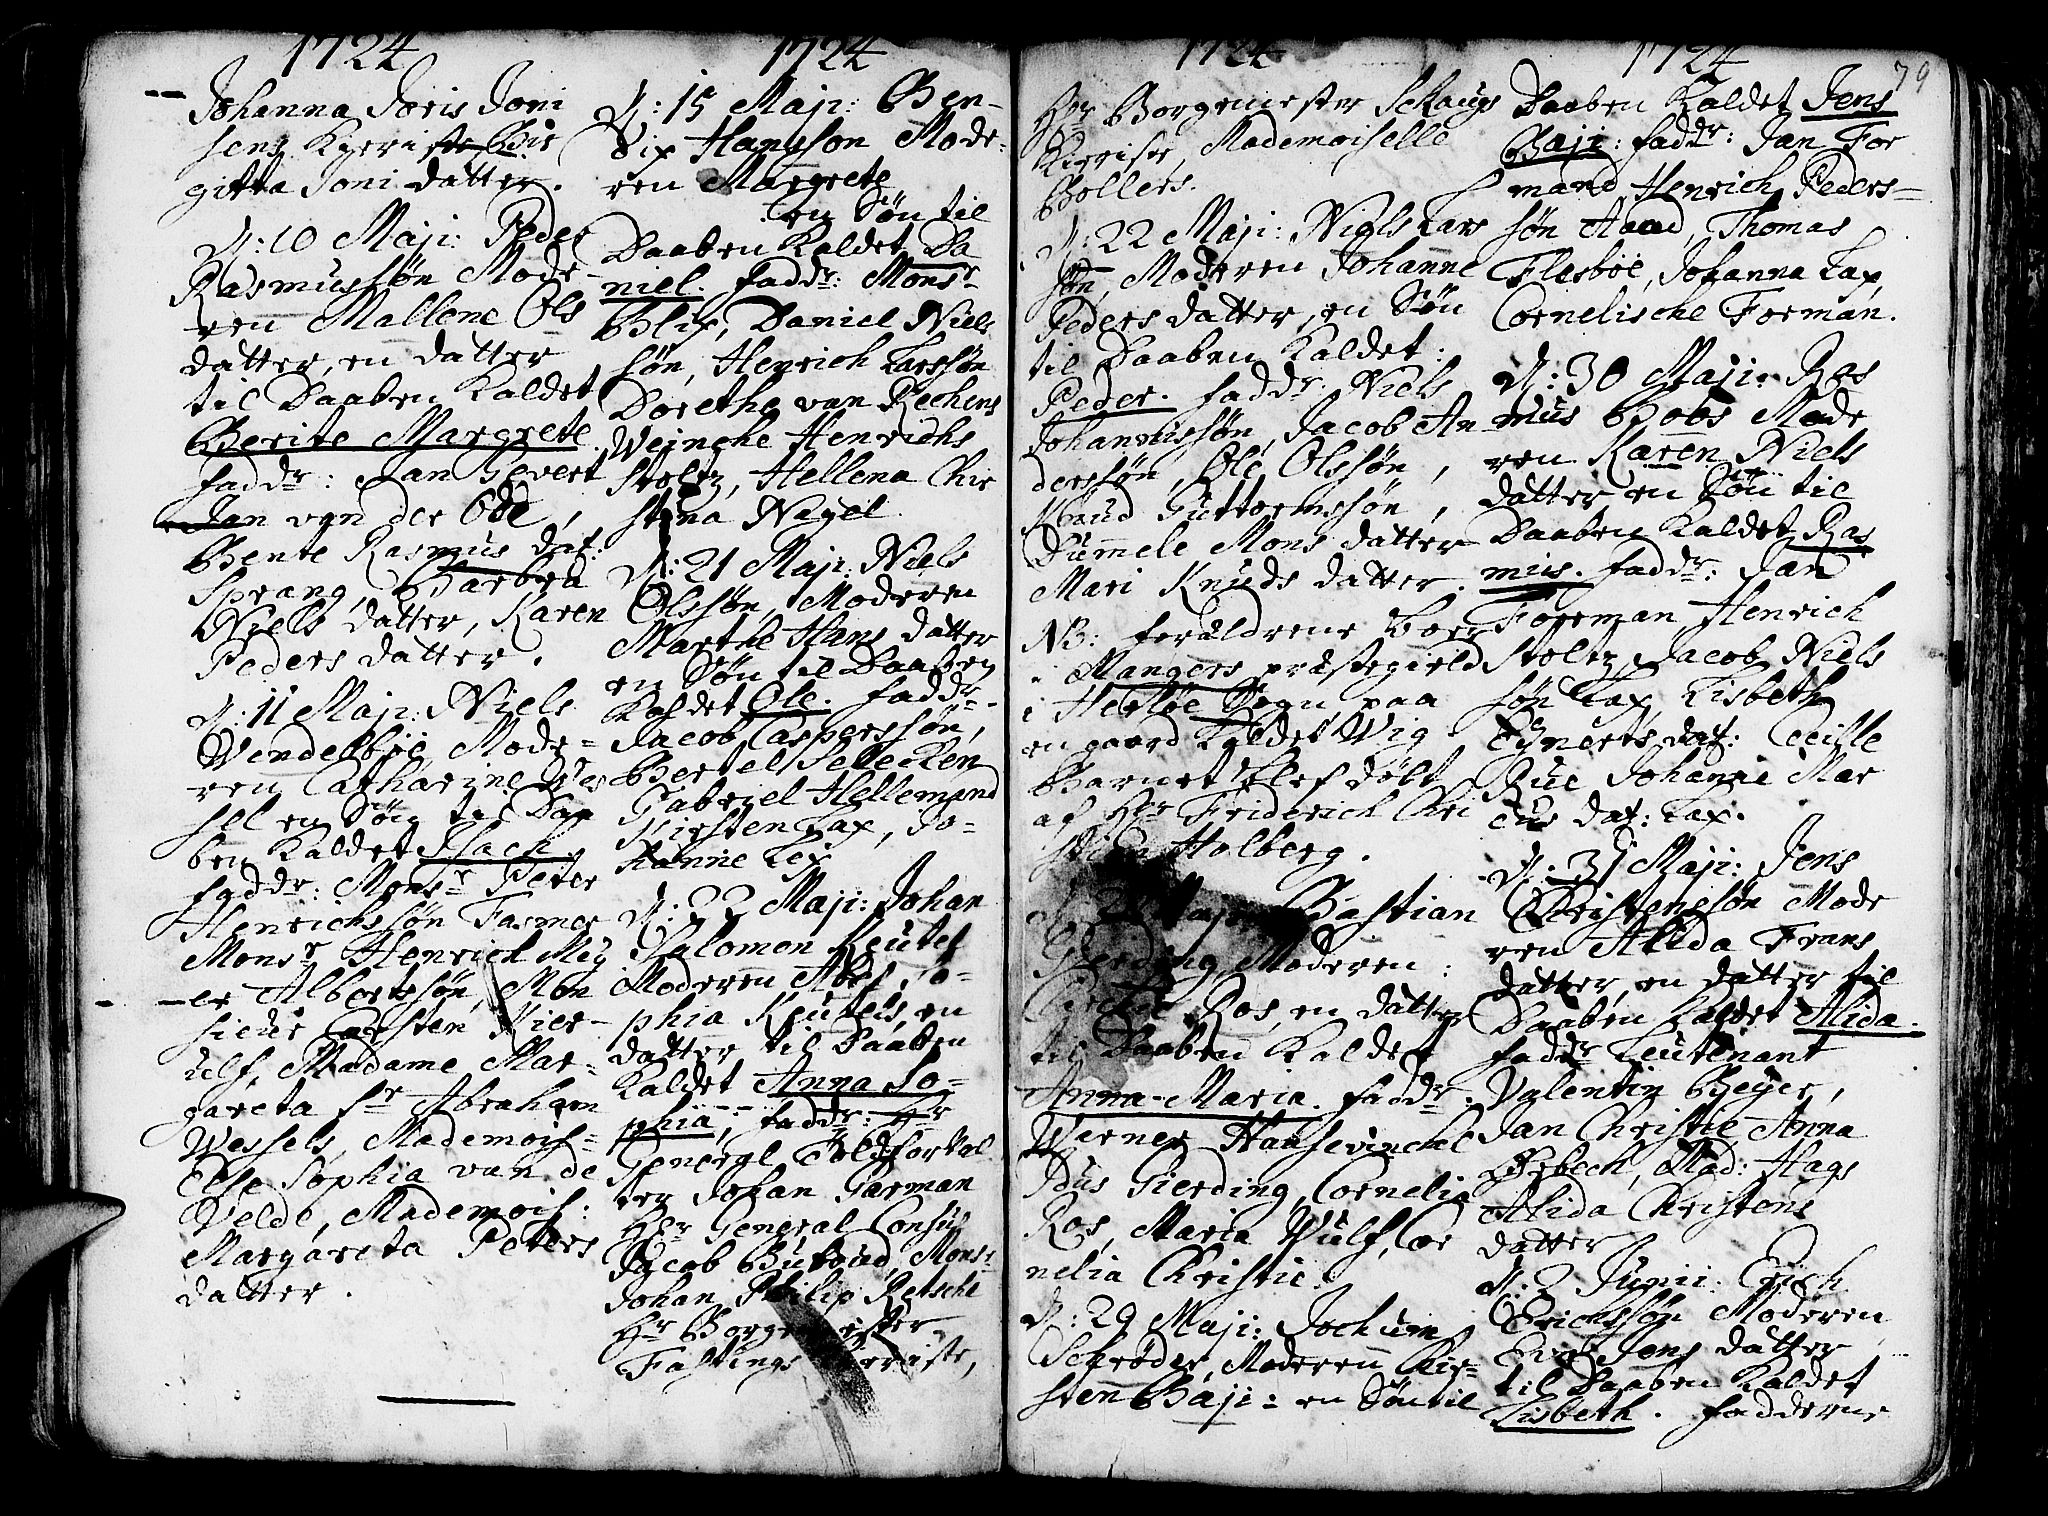 1724
Johanna Joris Joni
sens Kieriste Bir
gitta Joni datter.
D: 10 Maji: Peder
Rasmussøn Mode-
ren Mallene Ols
datter, en datter
til Daaben Kaldet
Berite Margrete.
fadd.r: Jan Gevert
Jan van der Ode,
Bente Rasmus dat:
Sprang, Barbra
Niels datter, Karen
Peders datter.
D: 11 Maji: Niels
Wendelboe, Mode-
ren Catharine Wes
sel en Søn til Daa
ben Kaldet Isach.
fadd.r: Mons.r Peter
Henrichssøn Fasmer
Mons.r Henrich Mey
er Albertssøn, Mon
sieur Carsten Kier-
ulf, Madame Mar-
gareta S.r Abraham
Wessels, Mademois-
Else Sophia van de
Velde, Mademois:
Margareta Peters
datter.
1724
D: 15 Maji: Ben-
dix Hansson Mode-
ren Margrete
en Søn til
Daaben Kaldet Da
niel. fadd.r: Mons.r
Blix, Daniel Niels
søn, Henrich Larssøn
Dorethe van Rechens
Weinche Henrichs
Stoltz, Hellena Chri
stina Negel.
D: 21 Maji: Niels
Olssøn, Moderen
Marthe Hans datter
en Søn til Daaben
Kaldet Ole. fadd.r
Jacob Casperssøn,
Bertel Sellecken
Gabriel Hellemand
Kirsten Lax, Jo-
hanne Lex
D: 22 Maji: Johan
Salomon Keutel
Moderen Abel So-
phia Keutels, en
datter til Daaben
Kaldet Anna So-
phia, fadd.r: H.r
General Toldforval
ter Johan Garman
H.r General Consul
Jacob Butoud, Mons.r
Johan Philip Retsche
H.r Borgemester
Fastings Kieriste,
1724
H.r Borgemester Schaugs
Kieriste, Mademoiselle
Bollers.
D: 22 Maji: Niels Lars
søn, Moderen Johanne
Peders datter, en Søn
til Daaben Kaldet:
Peder. fadd.r Niels
Johannissøn, Jacob An
derssøn, Ole Olssøn,
Knud Guttormssøn,
Dummele Mons datter
Mari Knuds datter.
NB: forældrene boer
i Mangers præstegield
i Herløe Sogn paa
en gaard Kaldet Wig
Barnet blef døbt
af H.r Friderich Chri
stian Holberg.
Maji: Bastian
Gierding Moderen:
Ros, en datter
til Daaben Kaldet
Anna-Maria. fadd.r:
Werner Hansevinckel
Idus Gierding, Cornelia
Ros, Maria Wulf, Cor
nelia Christie.
D: 29 Maji: Jochum
Schrøder, Moderen Kir-
sten Baji: en Søn til
1724
79
Daaben Kaldet Jens
Baji: fadd.r: Jan For
mand Henrich Peders-
søn Thomas
Flesboe, Johanna Lax,
Cornelische Forman.
D: 30 Maji: Ras
mus Bobs Mode
ren Karen Niels
datter en Søn til
Daaben Kaldet Ras
mus. fadd.r: Jan
Forman, Henrich
Stoltz, Jacob Niels
søn Lax, Lisbeth
Eynerts dat: Cecille
Rue Johanne Mar
cus dat: Lax.
D: 31 Maji: Jens
Christenssøn Mode
ren Alida Frans
datter, en datter til
Daaben Kaldet Alida.
fadd.r Leutenant
Valentin Beyer,
Jan Christie, Anna
Ørbech, Mad: Hags
Alida Christens
datter
D: 2 Junii: Erich
Erichssøn Moderen
Jens datter
til Daaben Kaldet
Lisbeth. fadderne